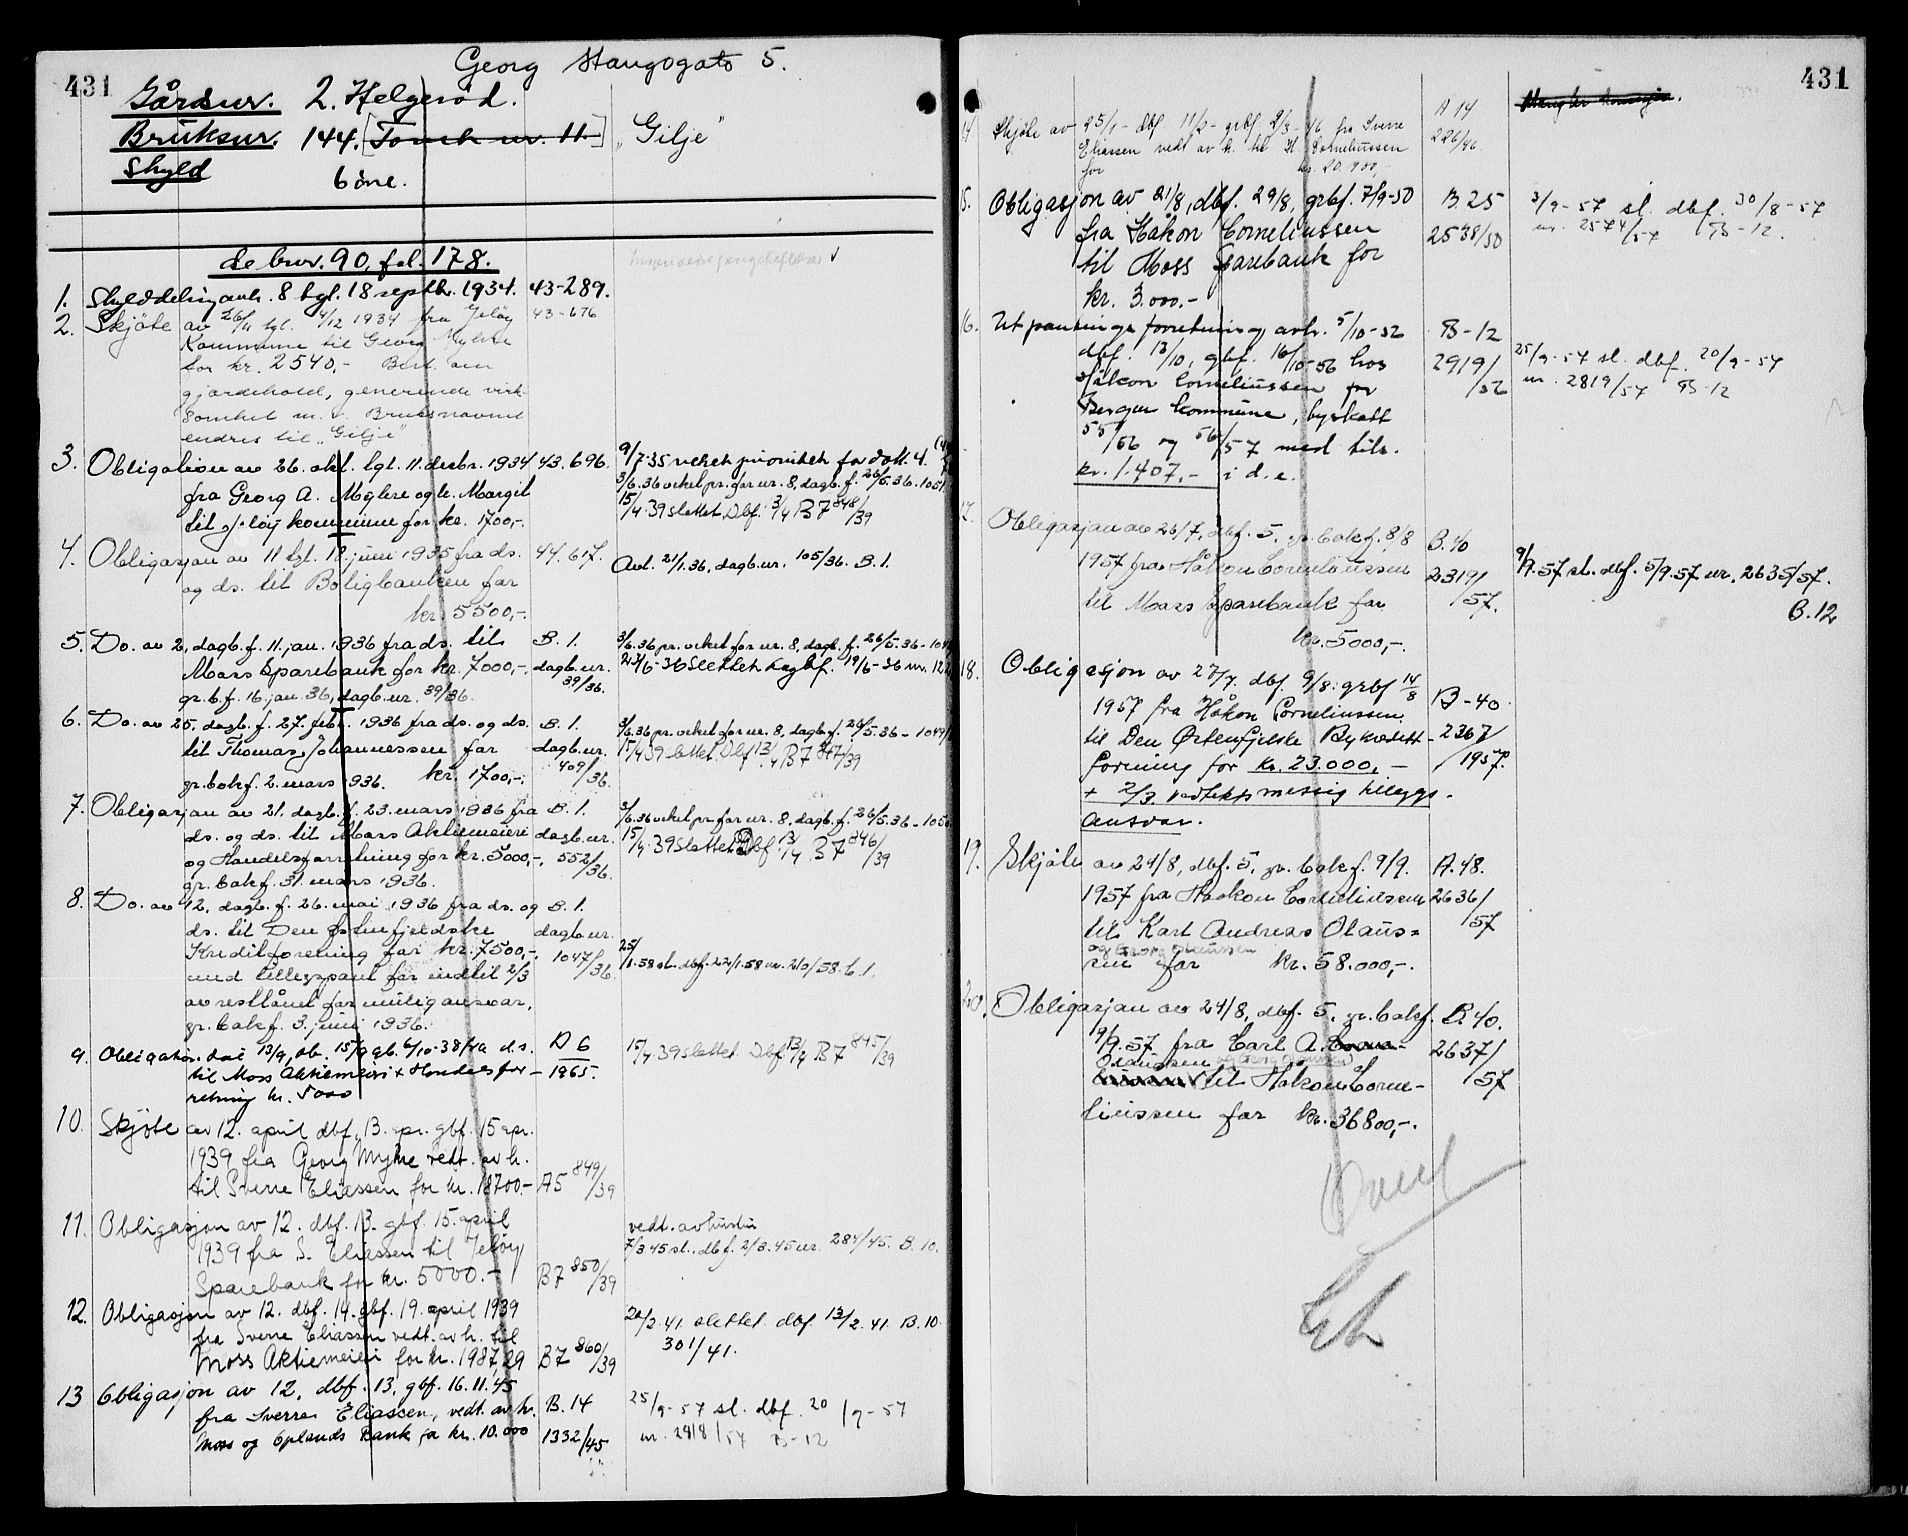 431
Georg Stangsgate 5.
Gårdsnr. 2. Helgerød.
Bruksnr. 144. [Tomt nr. 11.] "Gilje"
Skyld 6 øre.
Se brv. 90, fol. 178.
1. Skylddeling avh. 8 tgl. 18 septbr. 1934. 43-289.
2. Skjøte av 26/11 tgl. 4/12 1934 fra Jeløy 43-676
Kommune til Georg Myhre
for kr. 2540,- Best. om
gjerdehold, generende virk-
somhet m. v. Bruksnavnet
endres til "Gilje"
3. Obligation av 26. okt. tgl. 11. desbr. 1934 43.696. 9/7.35 veket prioritet for dok. 4.
fra Georg A. Myhre og h. Margit 3/6.36 veket pr. for nr. 8, dagb. f. 26/5.36.
til Jeløy kommune for kr. 1700,-. 15/4.39 slettet Dbf. 3/4 B7 848/39
4. Obligasjon av 11 tgl. 18. juni 1935 fra ds. 44.617. Avl. 21/1.36, dagb.nr. 105/36. B. 1.
og ds. til Boligbanken for
kr. 5500,-.
5. Do. av 2, dagb.f. 11. jan. 1936 fra ds. til B. 1. 3/6.36 pr. veket for nr. 8, dagb. f. 26/5.36-
Moss Sparebank for kr. 7000,-. dagb.nr. 39/36. 23/6-36 Slettet Dagbf. 19/6-36 nr.
gr.b.f. 16. jan 36, dagb.nr. 39/36.
6. Do. av 25. dagb. f. 27. febr. 1936 fra ds. og ds. B. 1. 3/6.36 pr. veket for nr. 8, dagb. f. 26/5.36-
til Thomas Johannessen for dagb.nr. 409/36. 15/4 39 slettet Dbf 13/4 B7 847/39
gr.bokf. 2. mars 1936. kr. 1700,-.
7. Obligasjon av 21. dagb. f. 23. mars 1936 fra B. 1. 3/6.36 veket pr. for nr. 8, dagb. f. 26/5.36-
ds. og ds. til Moss Aktiemeieri dagb.nr. 15/4.39 Slettet Dbf. 13/4 B7 846/39
og Handelsforretning for kr. 5000,-. 552/36.
gr. bokf. 31. mars 1936.
8. Do. av 12. dagb. f. 26. mai 1936 fra ds. og B. 1.
ds. til Den Østenfjeldske dagb.nr.
Kreditforening for kr. 7500,-. 1047/36. 25/1.58 sl. dbf. 22/1.58 nr. 210/58. B. 1.
med tilleggspant for indtil 2/3
av restlånet for mulig ansvar,
gr. bokf. 3. juni 1936.
9. Obligasjon dat 13/9, db. 15/9 gb. 6/10-38 fra d.s. D 6 15/4.39 slettet Dbf 13/4 B7 845/39
til Moss Aktiemeieri + Handelsfor- 1965.
retning kr. 5000
10. Skjøte av 12. april dbf. 13. apr. gbf. 15 apr.
1939 fra Georg Myhre vedt. av h.
til Sverre Eliassen for kr. 18700.- A5 849/39
11. Obligasjon av 12. dbf. 13. gbf. 15. april vedt. av hustru
1939 fra S. Eliassen til Jeløy 7/3.45 sl. dbf. 2/3.45 nr. 284/45. B. 10.
Sparebank for kr. 5000.- B7 850/39
12. Obligasjon av 12. dbf. 14. gbf. 19. april 1939 20/2.41. slettet dbf. 13/2.41. B. 10.
fra Sverre Eliassen vedt. av h. til 301/41.
Moss Aktiemeieri for kr. 1987,29 B7 860/39
13 Obligasjon av 12. dbf. 13. gbf. 16.11.45 B. 14 25/9-57 sl. dbf. 20/9-57
fra Sverre Eliassen, vedt. av h. 1332/45 nr. 2818/57 B-12
Moss og Oplands Bank for kr. 10.000
431
Mangler konsesjon.
14 Skjøte av 25/1- dbf. 11/2- grbf. 2/3-46 fra Sverre A 14
Eliassen vedt av h. til H. Corneliussen 226/46.
for kr. 20.900,-
15. Obligasjon av 21/8, dbf. 29/8, grbf. 7/9-50 B 25 3/9-57 sl. dbf. 30/8-57
fra Håkon Corneliussen 2538/50 nr. 2574/57 B-12.
til Moss Sparebank for
kr. 3.000.-
16. Utpantningsforretning avh. 5/10-56 B-12
dbf. 13/10, gbf. 16/10-56 hos 2919/56 25/9-57 sl. dbf. 20/9-57
Håkon Corneliussen for nr. 2819/57 B-12
Bergen kommune, byskatt
55/56 og 56/57 med tils.
kr. 1.407,- i d. e.
17. Obligasjon av 26/7, dbf. 5. gr. bokf. 8/8 B. 40
1957 fra Håkon Corneliussen 2319/57. 9/9.57 sl. dbf. 5/9.57 nr. 2635/57.
til Moss Sparebank for B. 12
kr. 5000,-.
18. Obligasjon av 27/7. dbf 9/8. grbf 14/8 B-40
1957 fra Håkon Corneliussen 2367/1957.
til Den Østenfjelske Bykreditt-
forening for kr. 23.000,-
+ 2/3 vedtektsmessig tilleggs-
ansvar.
19. Skjøte av 24/8, dbf. 5. gr. bokf. 9/9. A. 48.
1957 fra Haakon Corneliussen 2636/57
til Karl Andreas Olaus-
og Georg Olaussen
sen for kr. 58.000,-.
20. Obligasjon av 24/8, dbf. 5. gr. bokf. B. 40.
9/9.57 fra Carl A. 2637/57
Olaussen og Georg Olaussen
til Håkon Corne-
liussen for kr. 36800,-.